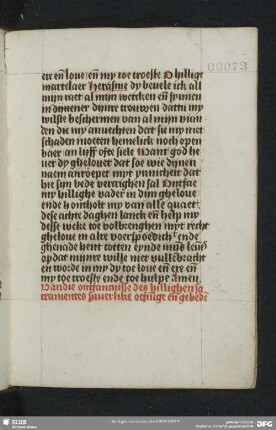 00073
ere en̄ loue en̄ my toe troeste O hillige
martelaer Herasme dy beuele ick all
mijn raet al mijn wercken en̄ synnen
in dineuer dijnre trouwen dattu my
wilste beschermen van al mijn vian
den die my anuechten dat si my niet
schaden moeten hemelick noch open
baer an lijff ofte siele Want god he
uet dy gheloeuet dat soe wie dynen
naem anroepet myt ynnicheit dat
hie sijn bede vercrighen sal Ontfae
my hillighe vader in dijn gheloue
ende ontholt my van alle quaet
dese achte daghen lanck en̄ help my
desse weke toe volbrenghen myt recht
gheloue in alre voerspoedich ende
ghenade hent totten eynde mijns leuens
op dat mijnre wille niet vullebracht
en worde in my dy toe loue en̄ ere en̄
my toe troeste ende toe hulpe Amen
Van die ontfancnisse des hillighen sa
cramentes suuerlike oefninge en̄ gebede
SLUB
DFG